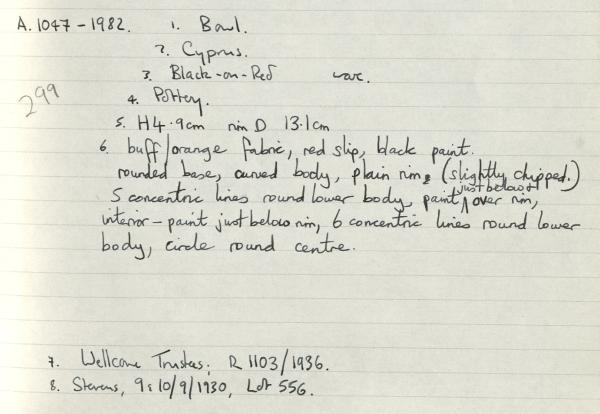 A. 1047 - 1982. 1. Bowl.
2. Cyprus.
299
3. Black-on-Red ware.
4. Pottery.
5. H 4.9cm rim D 13.1cm
6. buff/orange fabric, red slip, black paint.
rounded base, curved body, plain rim, (slightly chipped.)
5 concentric lines round lower body, paint just below & over rim,
interior - paint just below rim, 6 concentric lines round lower
body, circle round centre.
7. Wellcome Trustees; R 1103/1936.
8. Stevens, 9 & 10/9/1930, Lot 556.